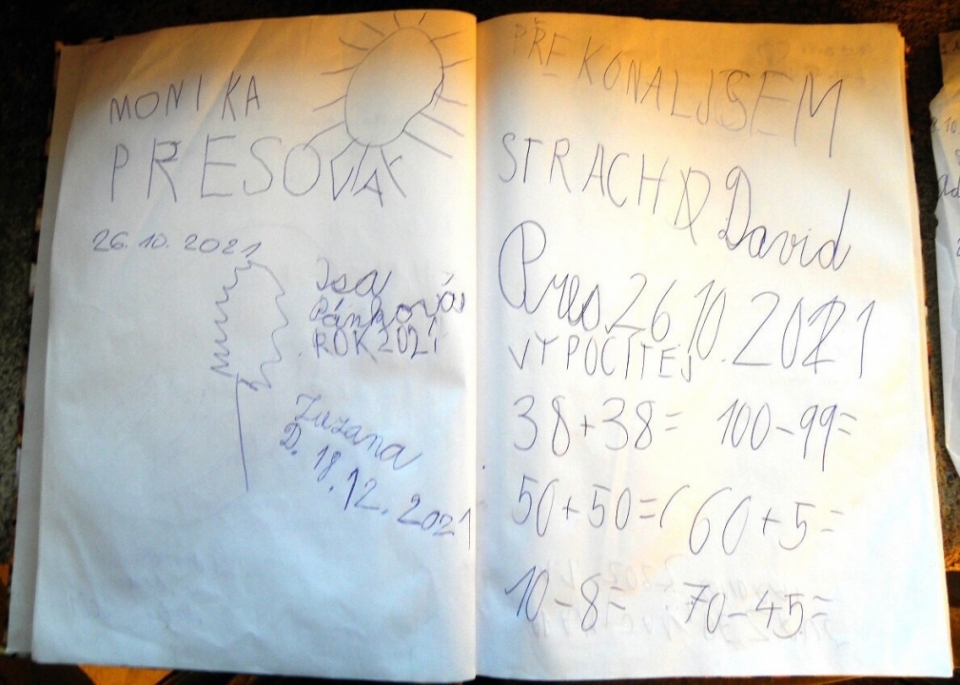 MONIKA
PRESOVÁ
26. 10. 2021
Isa
Pánková
ROK 2021
Zuzana
D. 18.12.2021
PŘEKONAL JSEM
STRACH David
Pres 26.10.2021
VYPOČÍTEJ
38+38= 100-99=
50+50= 60+5=
10-8= 70-45=